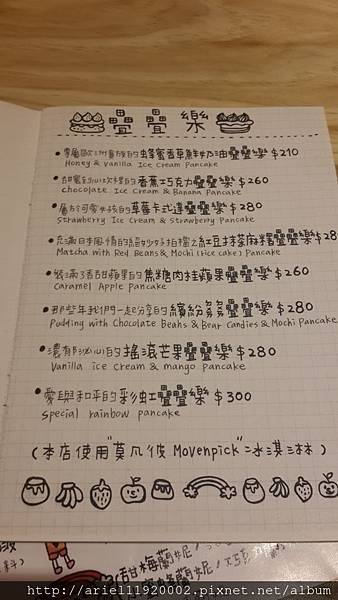 疊疊樂
蜂蜜香草鮮奶油疊疊樂 $210
Honey & Vanilla Ice Cream Pancake
甜蜜到心坎裡的香蕉巧克力疊疊樂 $260
chocolate Ice Cream & Banana Pancake
屬於可愛女孩的草莓卡式達疊疊樂 $280
Strawberry Ice Cream & Strawberry Pancake
充滿日本風情的絕妙好拍檔之紅豆抹茶麻糬疊疊樂 $28
Matcha with Red Beans & Mochi (rice cake) Pancake
裝滿了香甜蘋果的焦糖肉桂蘋果疊疊樂 $260
Caramel Apple Pancake
那些年我們一起分享的繽紛ㄋㄋ疊疊樂 $280
Pudding with Chocolate Beans & Bear Candies & Mochi Pancake
濃郁沁心的搖滾芒果疊疊樂 $280
Vanilla ice cream & mango pancake
愛與和平的彩虹疊疊樂 $300
Special rainbow pancake
(本店使用"莫凡彼 Movenpick"冰淇淋)
http://ariel11920002.pixnet.net/album